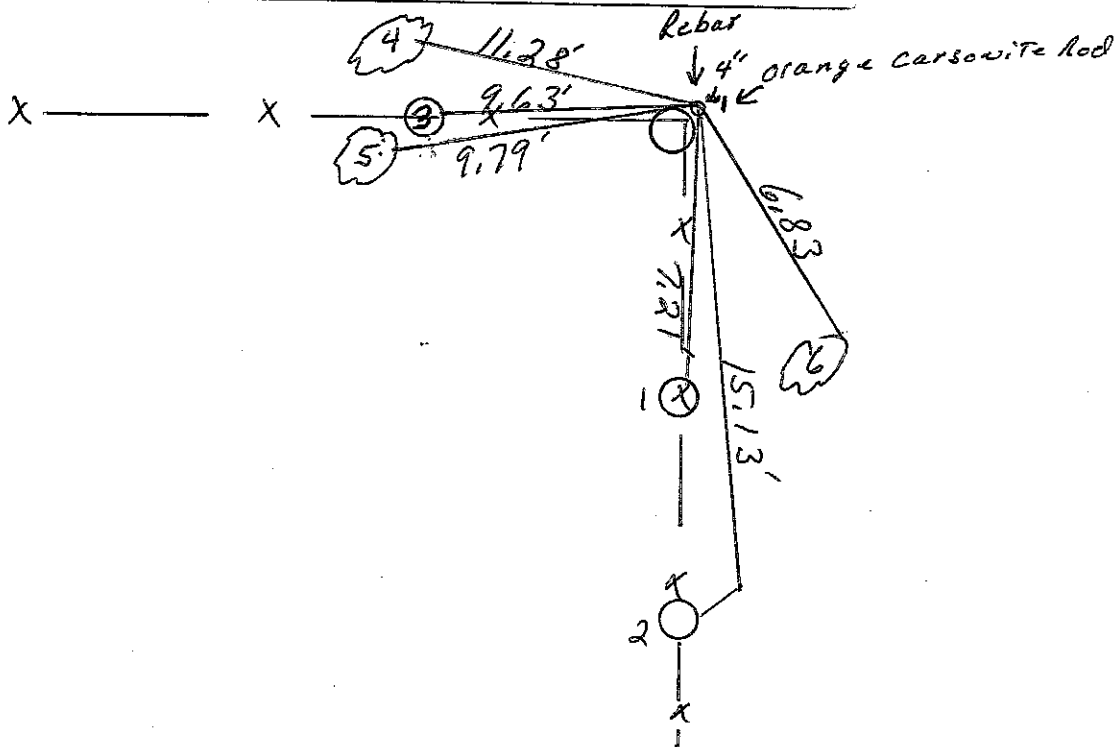 Rebar
4"
orange carsonite Rod
4
11.28'
9.63'
X
X
3
X
5
9.79'
6.83
X
7.21'
6
1
X
15.13'
X
2
X